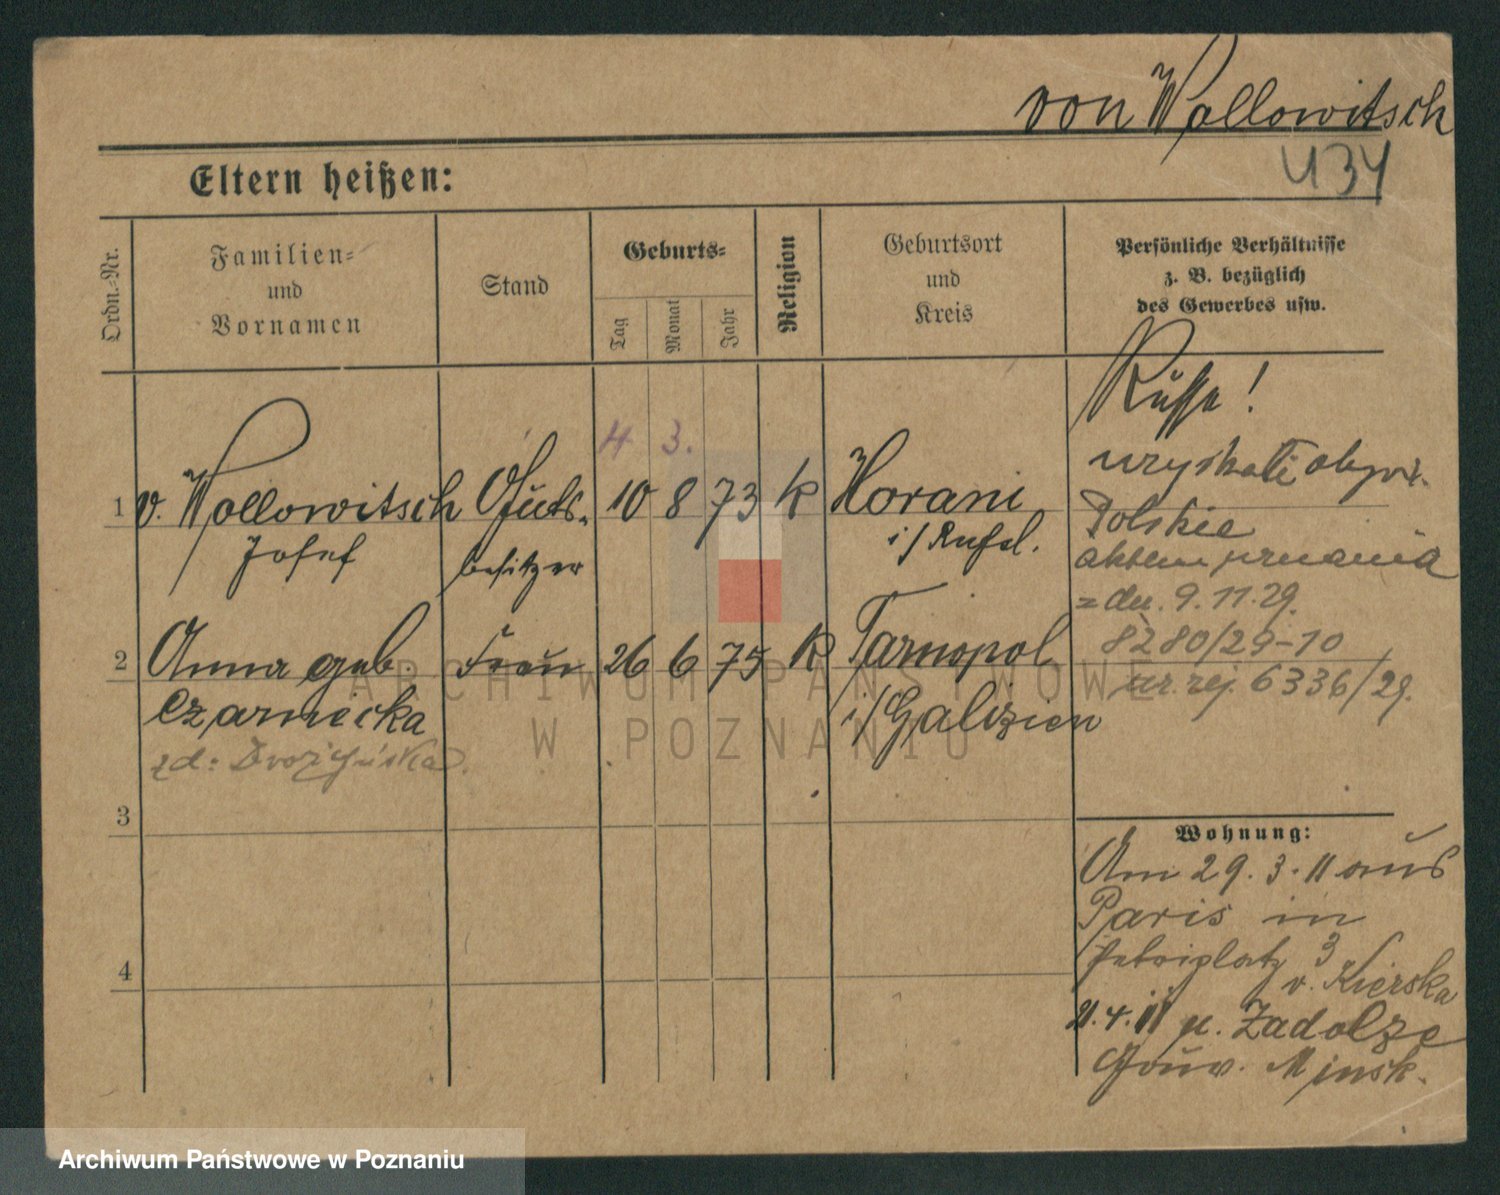 von Wollowitsch
434
Eltern heißen:
Ordn.-Nr.
Familien-
und
Vornamen
Stand
Geburts-
Tag
Monat
Jahr
Religion
Geburtsort
und
Kreis
Persönliche Verhältnisse
z. B. bezüglich
des Gewerbes usw.
Russe!
4 3.
1 v. Wollowitsch Guts- 10 8 73 k Horani
Josef besitzer i/Rußl.
uzyskali obyw.
Polskie
aktem
9.11.29.
8280/29-10
nr. rej. 6336/29.
2 Anna geb. Frau 26 6 75 k Tarnopol
Czarnecka i/Galizien
3
4
Wohnung:
Am 29.3.11 aus
Paris in
Petriplatz 3
v. Kierska
21.4.11 n. Zadolze
Gouv. Minsk.
ARCHIWUM PAŃSTWOWE
W POZNANIU
Archiwum Państwowe w Poznaniu